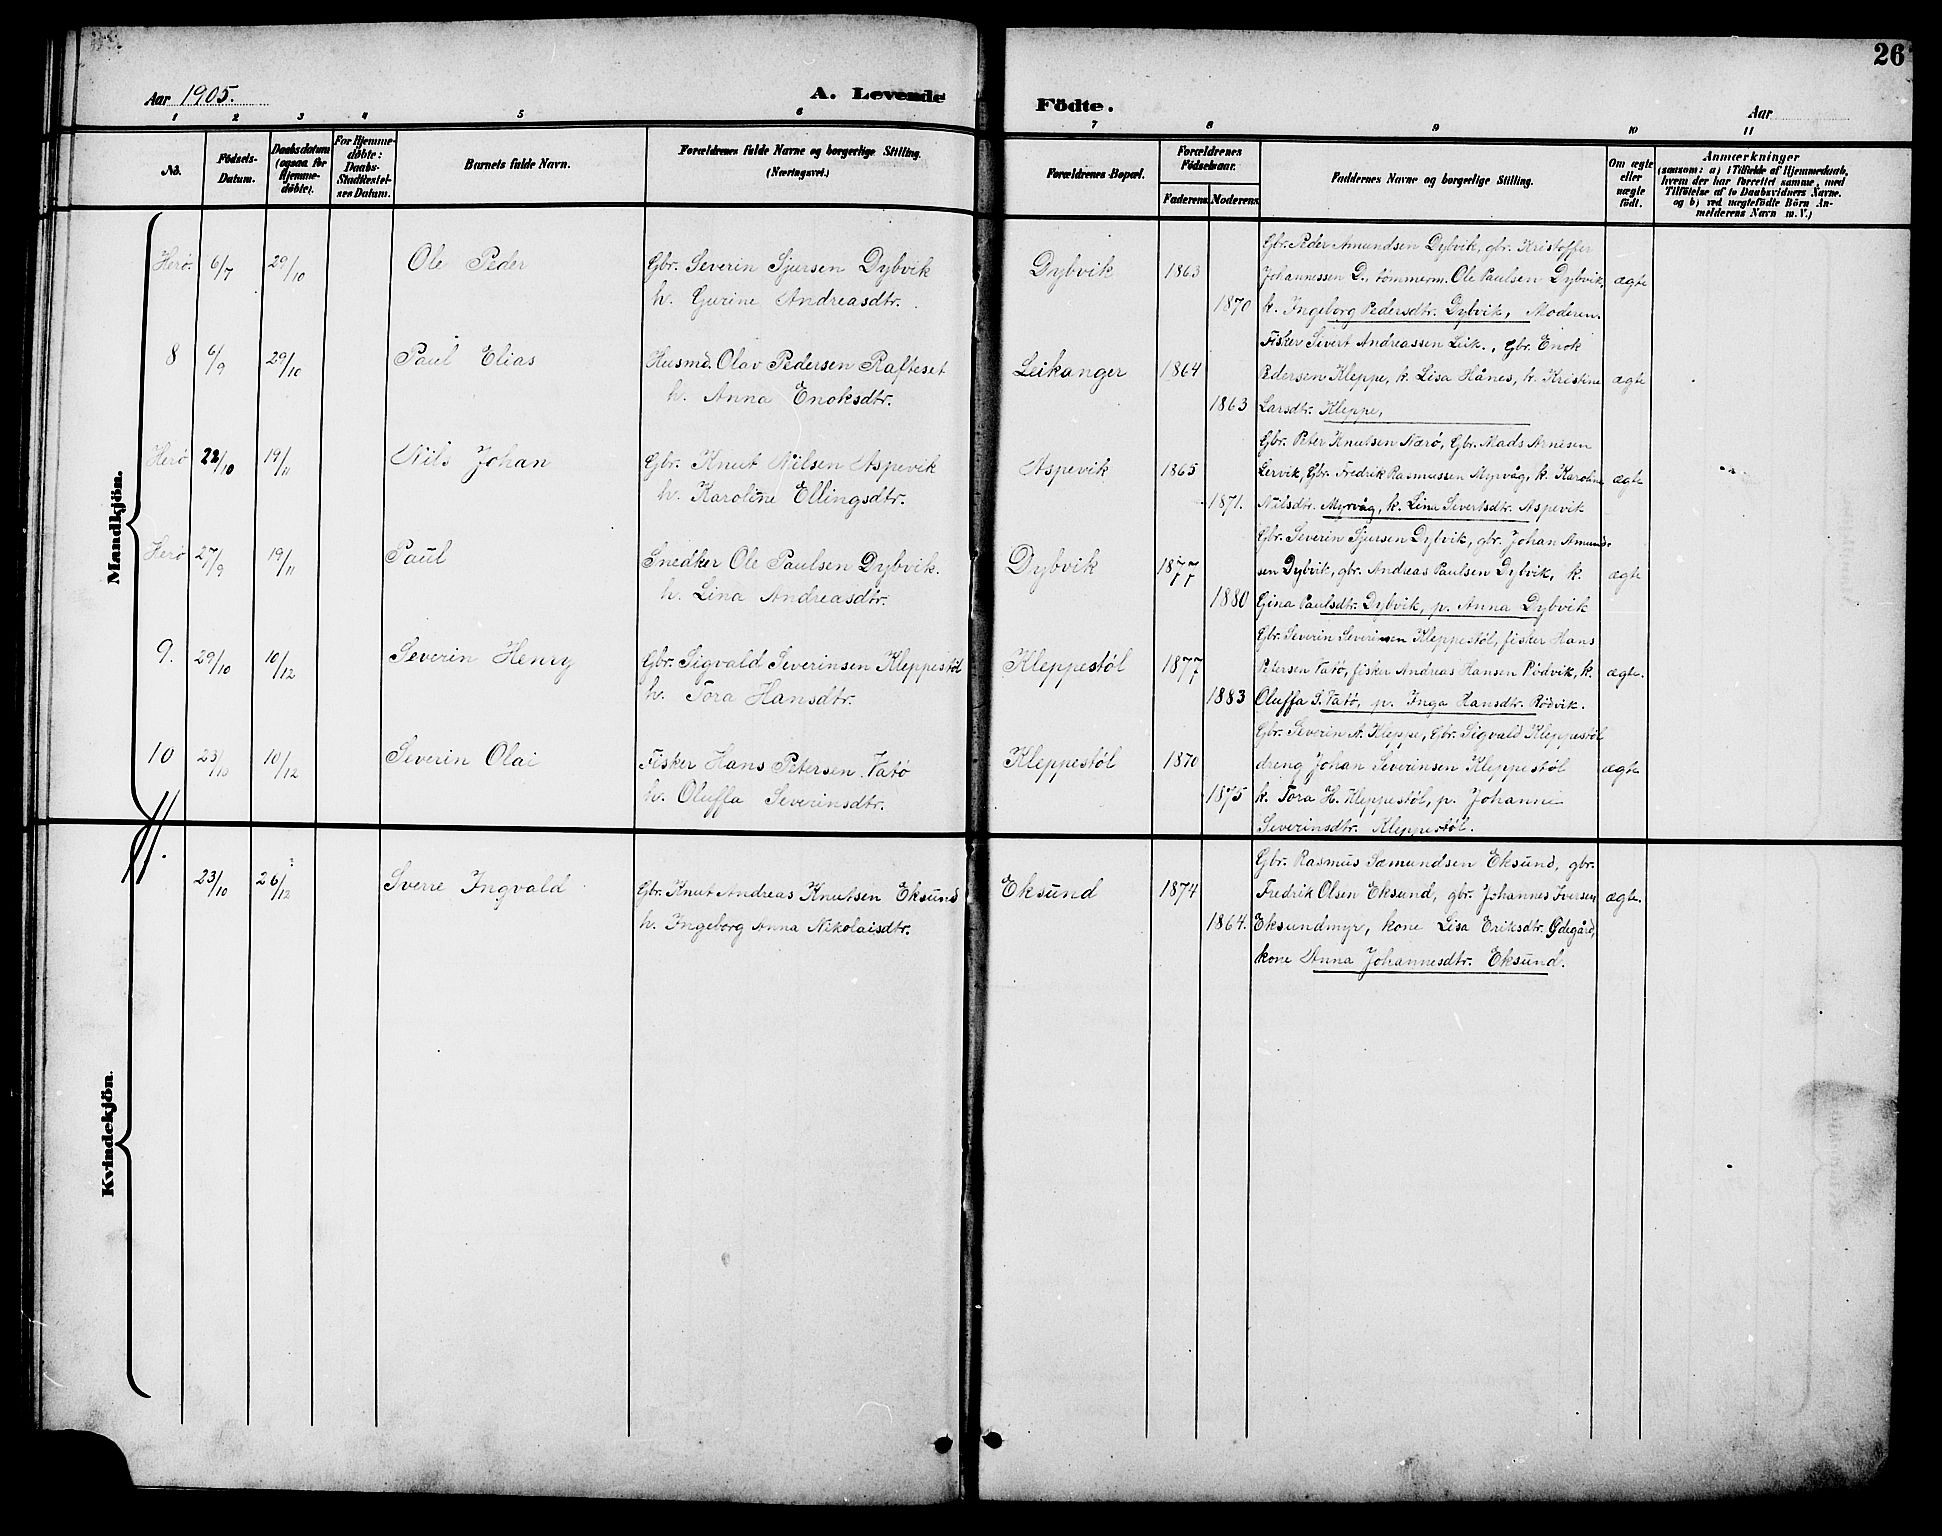 26
Aar 1905.
A. Levende Födte.
Aar
1 2 3 4 5 6 7 8 9 10 11
No.
Födsels-
Datum.
Daabsdatum
(ogsaa for
Hjemme-
döbte).
For Hjemme-
döbte:
Daabs-
Stadfæstel-
ses Datum.
Barnets fulde Navn.
Forældrenes fulde Navne og borgerlige Stilling.
(Næringsvei.)
Forældrenes Bopæl.
Forældrenes
Födselsaar.
Faderens. Moderens.
Faddernes Navne og borgerlige Stilling.
Om ægte
eller
uægte
födt.
Anmærkninger
(saasom: a) i Tilfælde af Hjemmedaab,
hvem der har forrettet samme, med
Tilföielse af to Daabsvidners Navne.
og b) ved uægtefödte Börn An-
melderens Navn m. V.)
Mandkjön.
Herö. 6/7 29/10 Ole Peder
Gbr. Severin Sjursen Dybvik
h. Gurine Andreasdtr.
Dybvik 1863
1870
Gbr. Peder Amundsen Dybvik, gbr. Kristoffer
Johannessen D., tømmerm. Ole Paulsen Dybvik,
k. Ingeborg Pedersdtr. Dybvik, Moderen.
ægte
8 6/9 29/10 Paul Elias
Husmd. Olav Pedersen Rafteset
h. Anna Enoksdtr.
Leikanger 1864
1863
Fisker Sivert Andreassen Leik., Gbr. Enok
Pedersen Kleppe, k. Lisa Hånes, k. Kristine
Larsdtr. Kleppe,
ægte
Herö 22/10 19/11 Nils Johan
Gbr. Knut Nilsen Aspevik
h. Karoline Ellingsdtr.
Aspevik 1865
1871.
Gbr. Peter Knutsen Nærö, Gbr. Mads Arnesen
Lervik, Gbr. Fredrik Rasmussen Myrvåg, k. Karoline
Nilsdtr. Myrvåg, k. Lina Sivertsdtr. Aspevik
ægte
Herö 27/9 19/11 Paul
Snedker Ole Paulsen Dybvik.
h. Lina Andreasdtr.
Dybvik 1877
1880
Gbr. Severin Sjursen Dybvik, gbr. Johan Amund-
sen Dybvik, gbr. Andreas Paulsen Dybvik, k.
Gina Paulsdtr. Dybvik, p. Anna Dybvik
ægte
9. 29/10 10/12 Severin Henry
Gbr. Sigvald Severinsen Kleppestöl
h. Tora Hansdtr.
Kleppestöl 1877
1883
Gbr. Severin Severinsen Kleppestöl, fisker Hans
Petersen Vatö, fisker Andreas Hansen Rödvik, k.
Oluffa S. Vatö, p. Inga Hansdtr. Rödvik.
ægte.
10 23/10 10/12 Severin Olai
Fisker Hans Petersen Vatö
h. Oluffa Severinsdtr.
Kleppestöl 1870
1875
Gbr. Severin A. Kleppe, Gbr. Sigvald Kleppestöl
dreng Johan Severinsen Kleppestöl
k. Tora H. Kleppestöl, p. Johanne
Severinsdtr. Kleppestöl.
ægte
11. 23/10 26/12 Sverre Ingvald
Gbr. Knut Andreas Knutsen Eksund
h. Ingeborg Anna Nikolaisdtr.
Eksund 1874
1864.
Gbr. Rasmus Sæmundsen Eksund, gbr.
Fredrik Olsen Eksund, gbr. Johannes Iversen
Eksundmyr, kone Lisa Eriksdtr. Ødegård,
kone Anna Johannesdtr. Eksund.
ægte.
Kvindekjön.